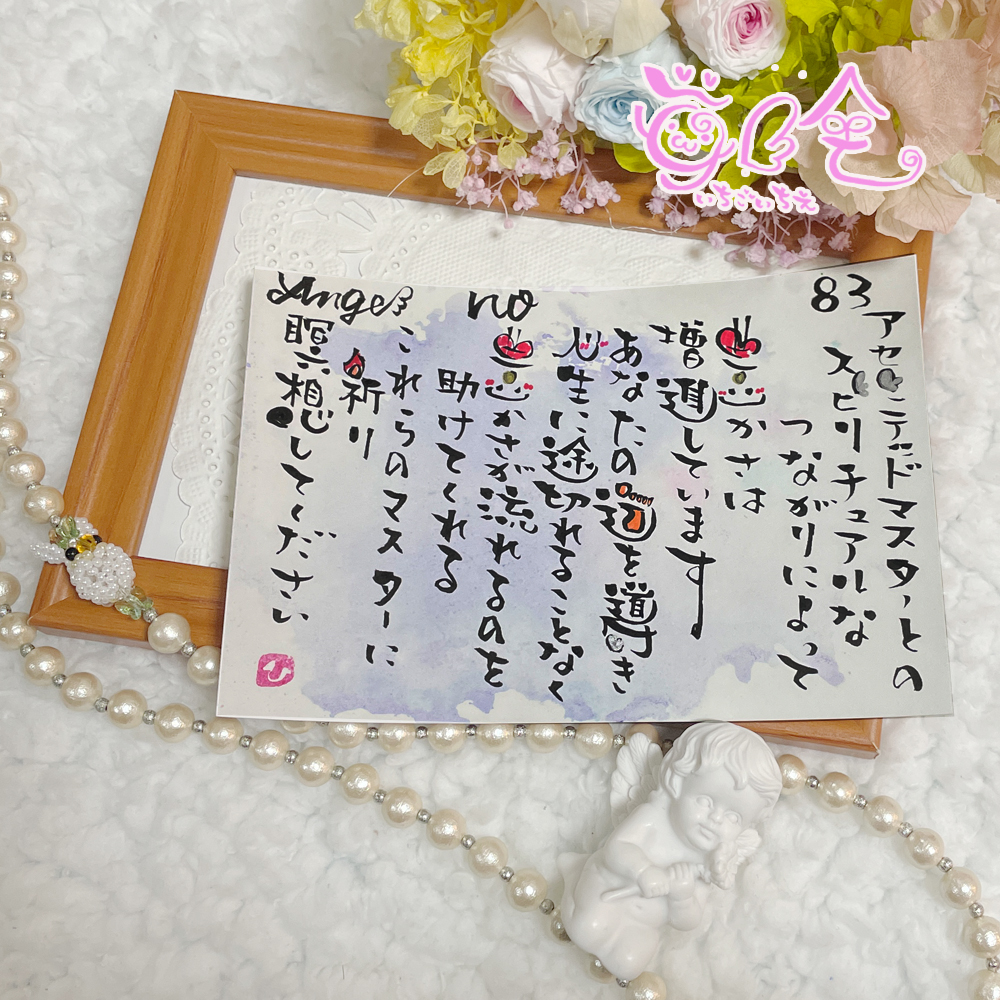 Angel no 83
アセンデッドマスターとの
スピリチュアルな
つながりによって
豊かさは
増進しています
あなたの道を導き
人生に途切れることなく
豊かさが流れるのを
助けてくれる
これらのマスターに
祈り
瞑想してください
いちごいちえ